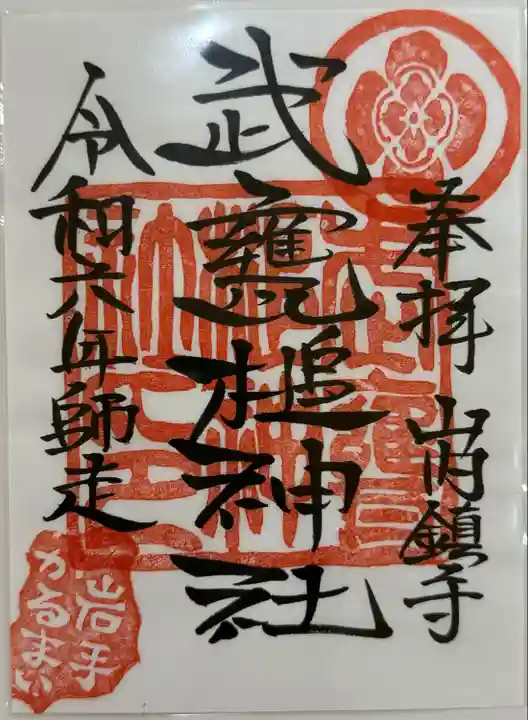 奉拝 山内鎮守
武甕槌神社
令和六年師走
岩手
かるまい